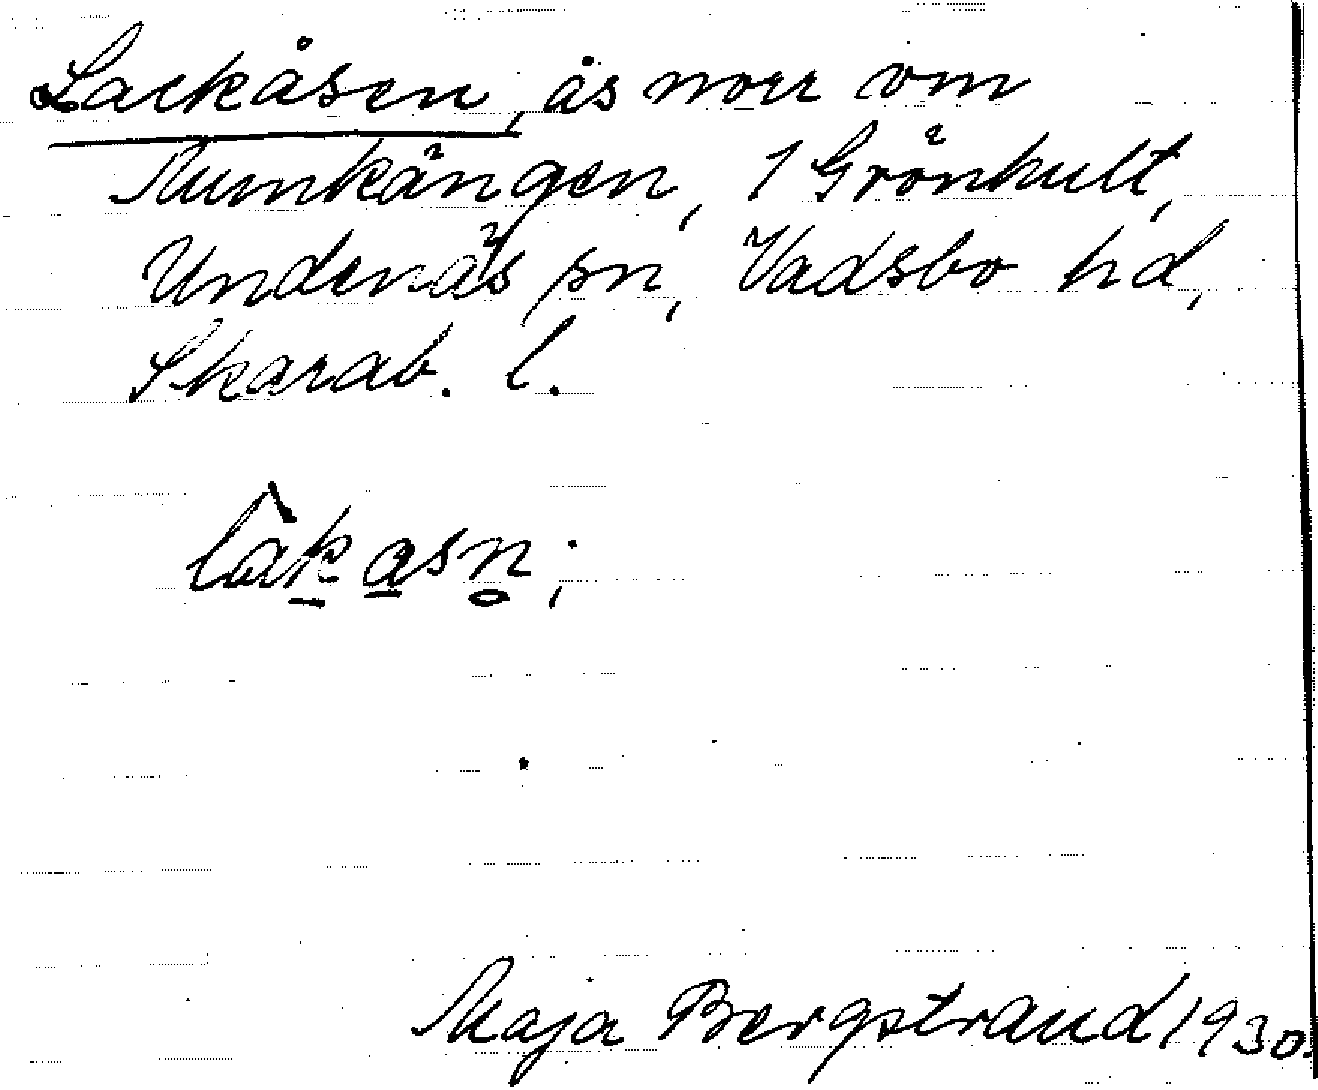 Lackåsen, ås norr om
Mumkängen, 1 Grönhult,
Undenäs sn, Vadsbo hd,
Skarab. l.
lâk̠a̠sn̥;
Maja Bergstrand 1930.